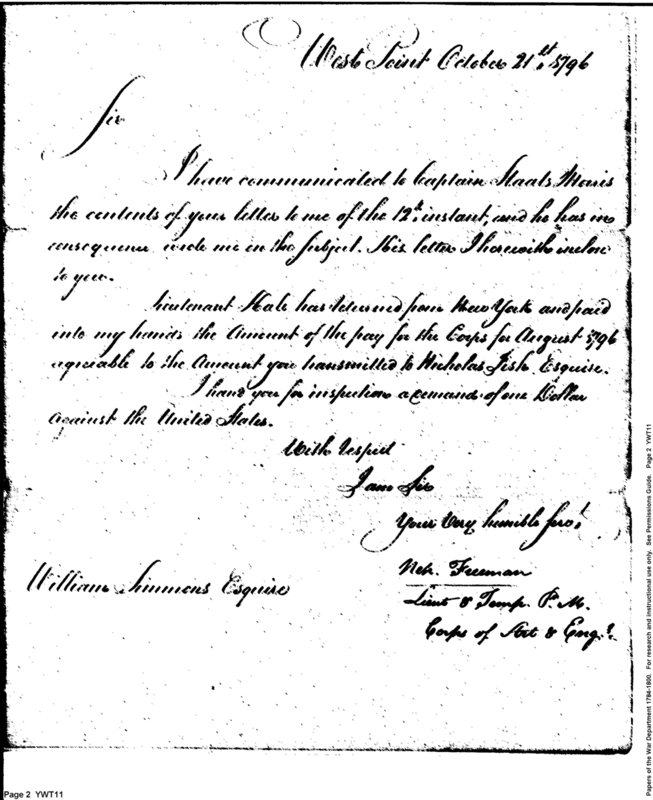 West Point October 21st 1796
Sir
I have communicated to Captain Staats Morris
the contents of your letter to me of the 12th instant, and he has in
consequence wrote me on the subject. His letter I herewith inclose
to you.
Lieutenant Hale has returned from New York and paid
into my hands the Amount of the pay for the Corps for August 1796
agreeable to the Amount you transmitted to Nicholas Fish Esquire.
I hand you for inspection a demand of one Dollar
against the United States.
With respect
I am Sir
Your Very humble servt
Neh. Freeman
Lieut & Temp. P. M.
Corps of Art & Engrs.
William Simmons Esquire
Page 2 YWT11
Papers of the War Department 1784-1800. For research and instructional use only. See Permissions Guide. Page 2 YWT11